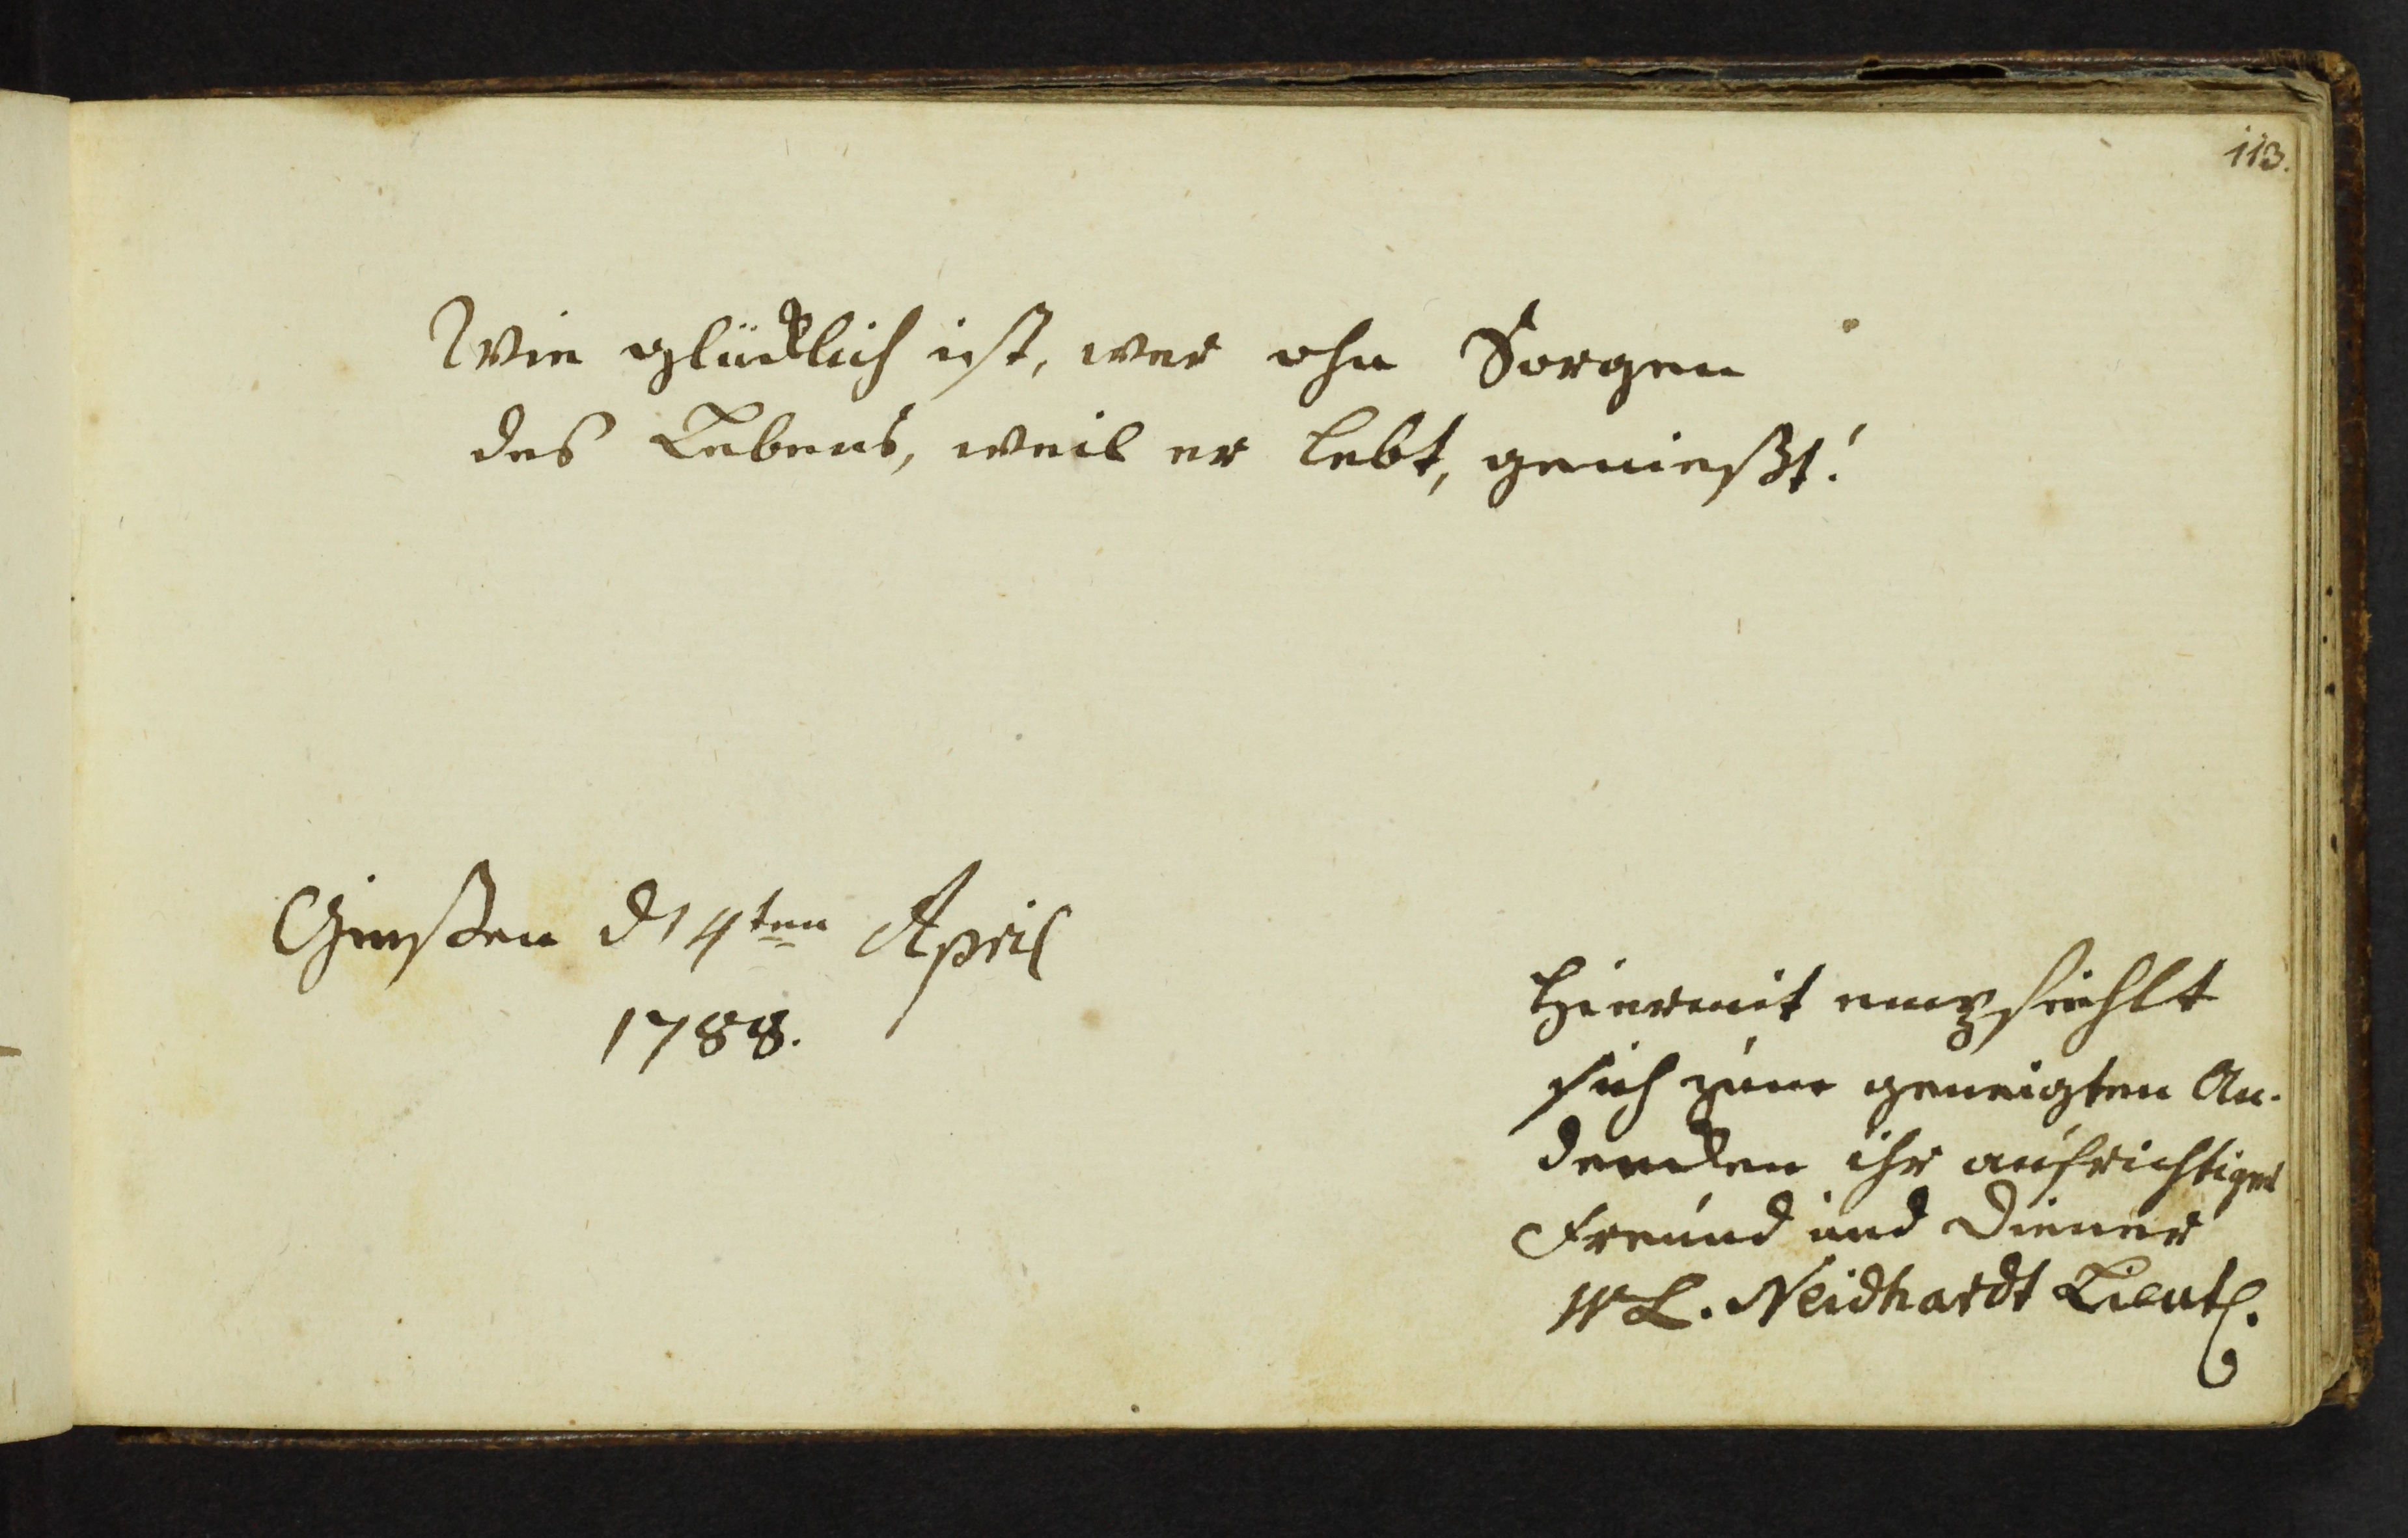 113.
Wie glücklich ist, wer ohn Sorgen
des Lebens, weil er lebt, genießt!
Giesßen d 14ten April
1788.
Hiermit empfiehlt
sich zum geneigten An-
dencken ihr aufrichtiger
Freund und Diener
W L. Neidhardt Lieut.